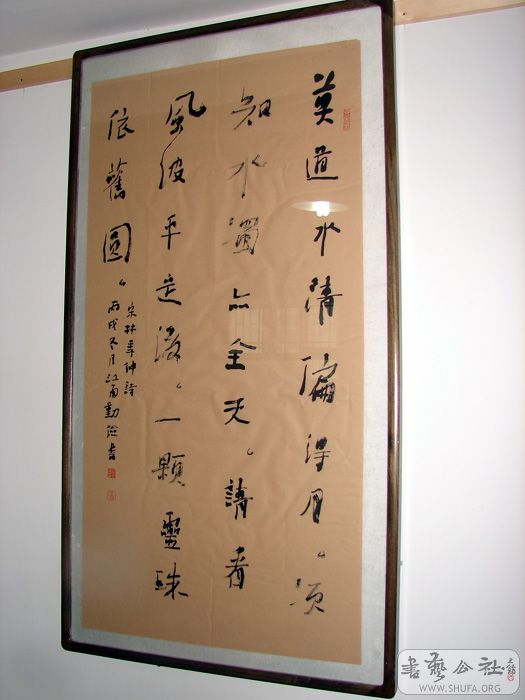 莫道水清偏得月。須
知水濁亦全天。請看
風波平定後。一顆靈珠
依舊圓。
宋林季仲詩
丙戌冬月江南勤儉書
書藝公社
WWW.SHUFA.ORG